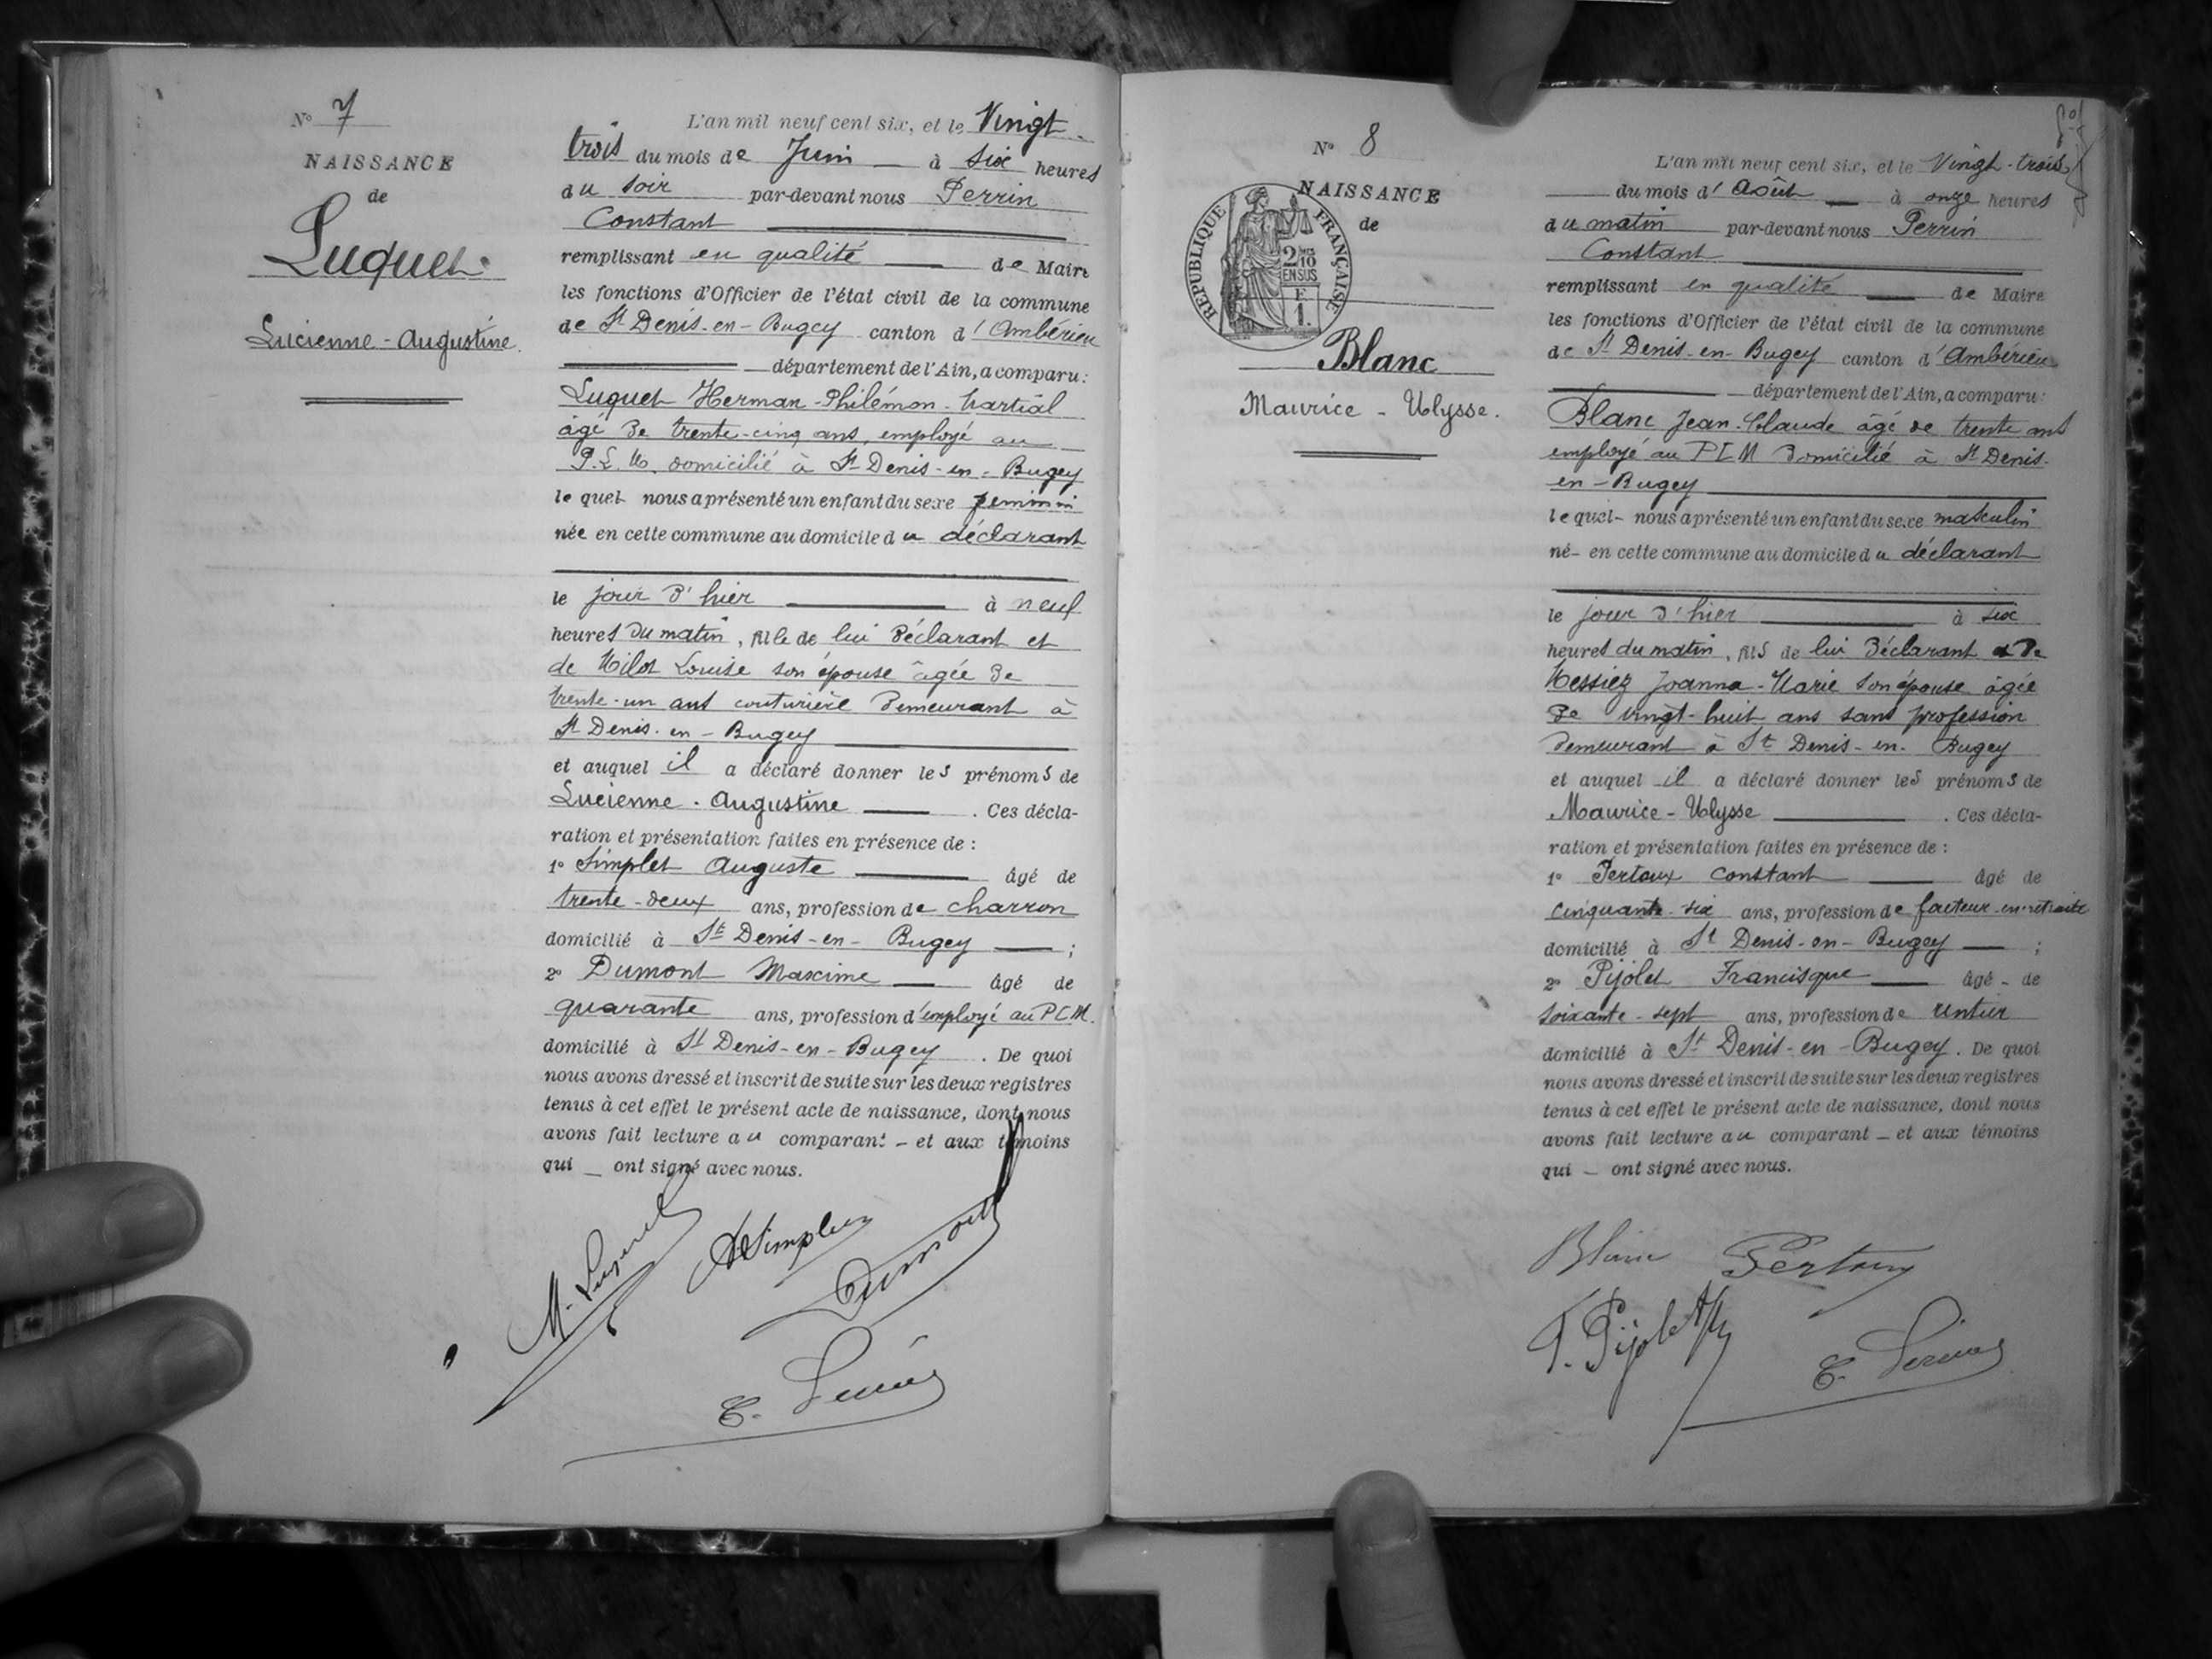 N° 7
NAISSANCE
de
Luquet
Lucienne - Augustine.
L'an mil neuf cent six, et le Vingt
trois du mois de Juin à six heures
du soir par-devant nous Perrin
Constant
remplissant en qualité de Maire
les fonctions d'Officier de l'état civil de la commune
de St Denis-en-Bugey canton d'Ambérieu
département de l'Ain, a comparu:
Luquet Herman-Philémon-Martial
âgé de trente-cinq ans, employé au
P.L.M. domicilié à St Denis-en-Bugey
lequel nous a présenté un enfant du sexe feminin
née en cette commune au domicile du déclarant
le jour d'hier à neuf
heures du matin, fille de lui déclarant et
de Milot Louise son épouse âgée de
trente-un ans couturière demeurant à
St Denis-en-Bugey
et auquel il a déclaré donner les prénoms de
Lucienne-Augustine. Ces décla-
ration et présentation faites en présence de :
1° Simplet Auguste âgé de
trente-deux ans, profession de charron
domicilié à St Denis-en-Bugey ;
2° Dumont Maxime âgé de
quarante ans, profession d'employé au PLM.
domicilié à St Denis-en-Bugey. De quoi
nous avons dressé et inscrit de suite sur les deux registres
tenus à cet effet le présent acte de naissance, dont nous
avons fait lecture au comparant - et aux témoins
qui - ont signé avec nous.
M. Luquet
A Simplet
Dumont
C. Perrin
N° 8
NAISSANCE
de
RÉPUBLIQUE FRANÇAISE
2/10
EN SUS
F
1.
Blanc
Maurice - Ulysse.
L'an mil neuf cent six, et le Vingt-trois
du mois d'Août à onze heures
du matin par-devant nous Perrin
Constant
remplissant en qualité de Maire
les fonctions d'Officier de l'état civil de la commune
de St Denis-en-Bugey canton d'Ambérieu
département de l'Ain, a comparu:
Blanc Jean-Claude âgé de trente ans
employé au PLM domicilié à St Denis-
en-Bugey
lequel- nous a présenté un enfant du sexe masculin
né- en cette commune au domicile du déclarant
le jour d'hier à six
heures du matin, fils de lui déclarant & de
Messiez Joanna-Marie son épouse âgée
de vingt-huit ans sans profession
demeurant à St Denis-en-Bugey
et auquel il a déclaré donner les prénoms de
Maurice-Ulysse. Ces décla-
ration et présentation faites en présence de :
1° Pertoux Constant âgé de
cinquante-six ans, profession de facteur en retraite
domicilié à St Denis-en-Bugey ;
2° Pijolet Francisque âgé - de
soixante-sept ans, profession de rentier
domicilié à St Denis-en-Bugey. De quoi
nous avons dressé et inscrit de suite sur les deux registres
tenus à cet effet le présent acte de naissance, dont nous
avons fait lecture au comparant - et aux témoins
qui - ont signé avec nous.
Blanc Pertoux
F. Pijolet
C. Perrin